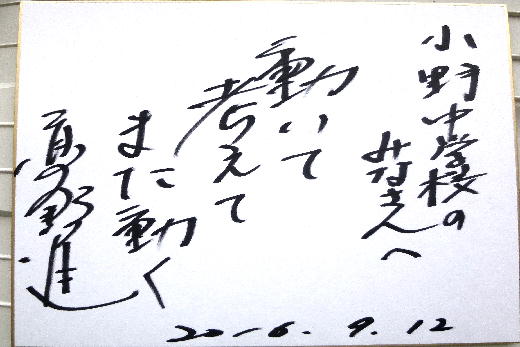 小野中学校の
みなさんへ
動いて
考えて
また動く
高野進
2016.9.12